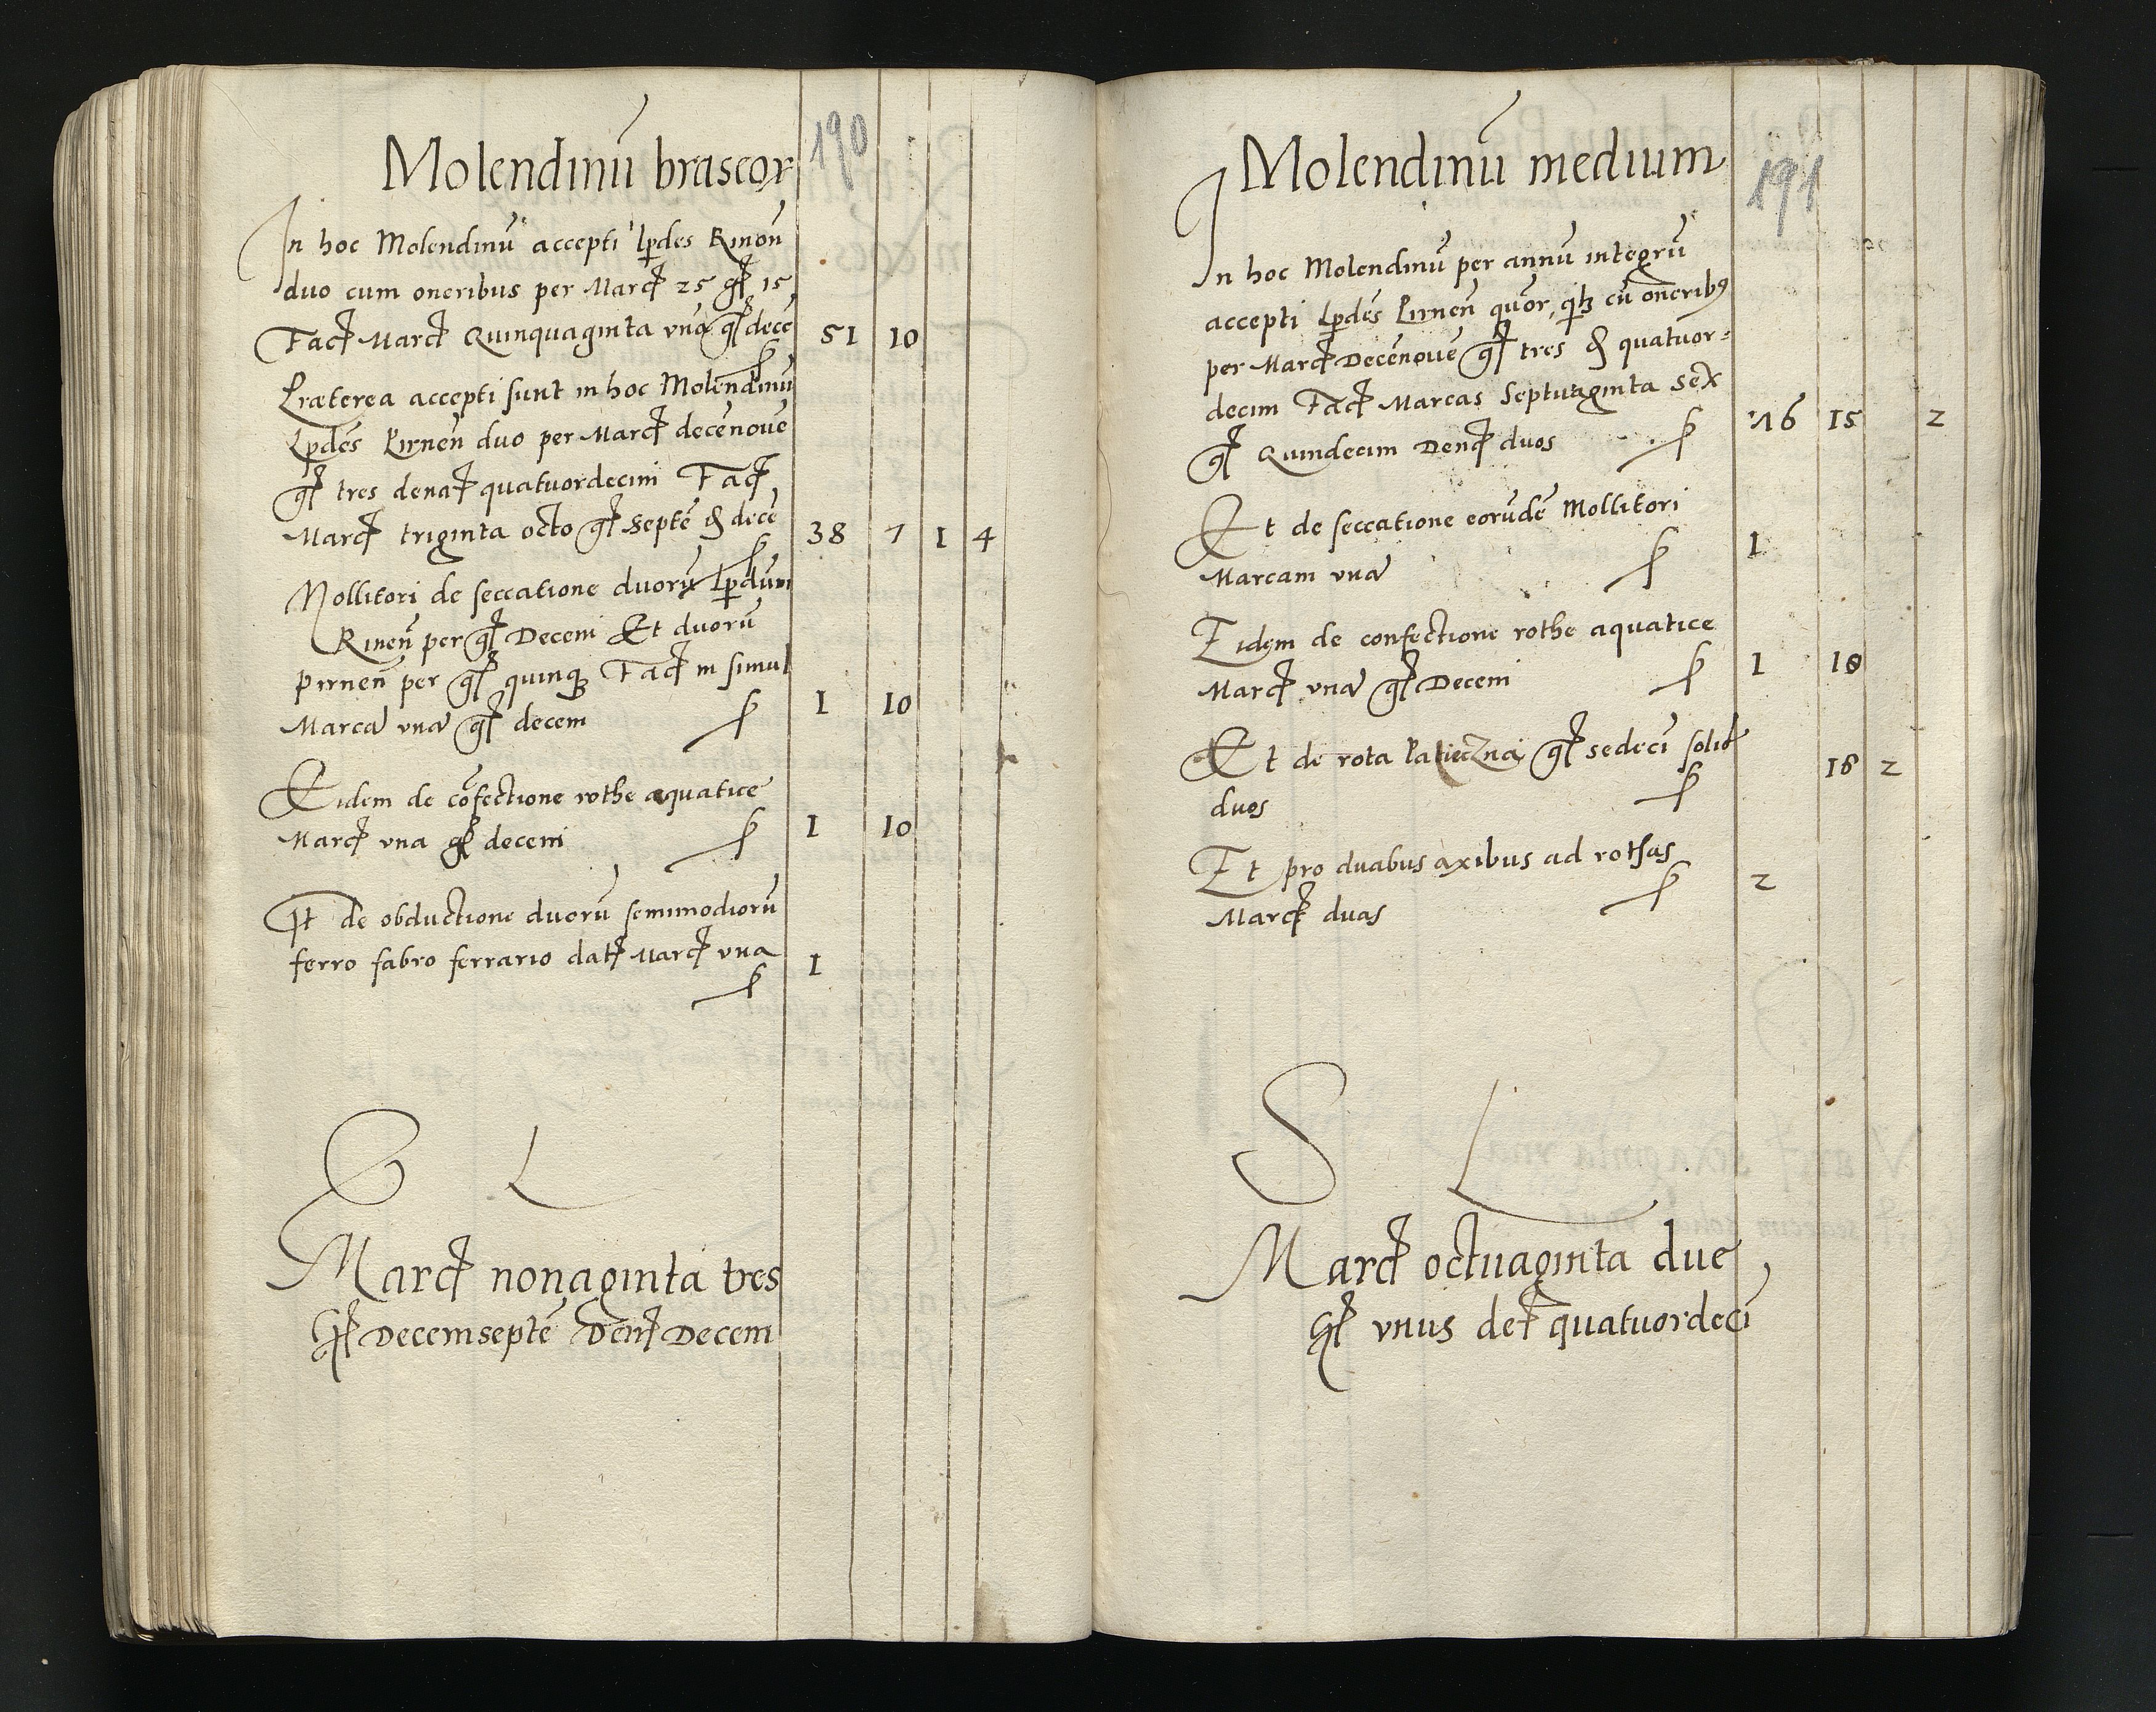 190
Molendinū braseor
In hoc Molendinū accepti lpdes Rinen̄
duo cum oneribus per Marcꝭ 25 gꝭ 15
Facꝭ Marcꝭ Quinquaginta vna gꝭ decē 51 10
Præterea accepti sunt in hoc Molendinū
Lpdes Pirnen̄ duo per Marcꝭ decēnovē
gꝭ tres denaꝭ quatuordecim Facꝭ
Marcꝭ triginta octo gꝭ septē ₰ decē 38 7 1 4
Mollitori de seccatione duorū lpdum
Rinen̄ per gꝭ Decem Et duorū
pirnen̄ per gꝭ quinqꝫ Facꝭ in simul
Marcā vnā gꝭ decem 1 10
Eidem de cōfectione rothe aquatice
Marcꝭ vna gꝭ decem 1 10
It de obductione duorū semimodiorū
ferro fabro ferrario datꝭ Marcꝭ vna 1
S L
Marcꝭ nonaginta tres
gꝭ Decemseptē Denꝭ Decem
191
Molendinū medium
In hoc Molendinū per annū integrū
accepti lpdes Pirnen̄ quor, cū oneribꝰ
per Marcꝭ Decēnovē gꝭ tres ₰ quatuor=
decim Facꝭ Marcas Septuaginta sex
gꝭ Quindecim Denꝭ duos 76 15 2
Et de seccatione eorūdē Mollitori
Marcam vnā 1
Eidem de confectione rothe aquatice
Marcꝭ vnā gꝭ Decem 1 10
Et de rota Palieczna gꝭ sedecī solid
duos 16 2
Et pro duabus axibus ad rothas
Marcꝭ duas 2
S L
Marcꝭ octuaginta due
gꝭ vnus deꝭ quatuordecī